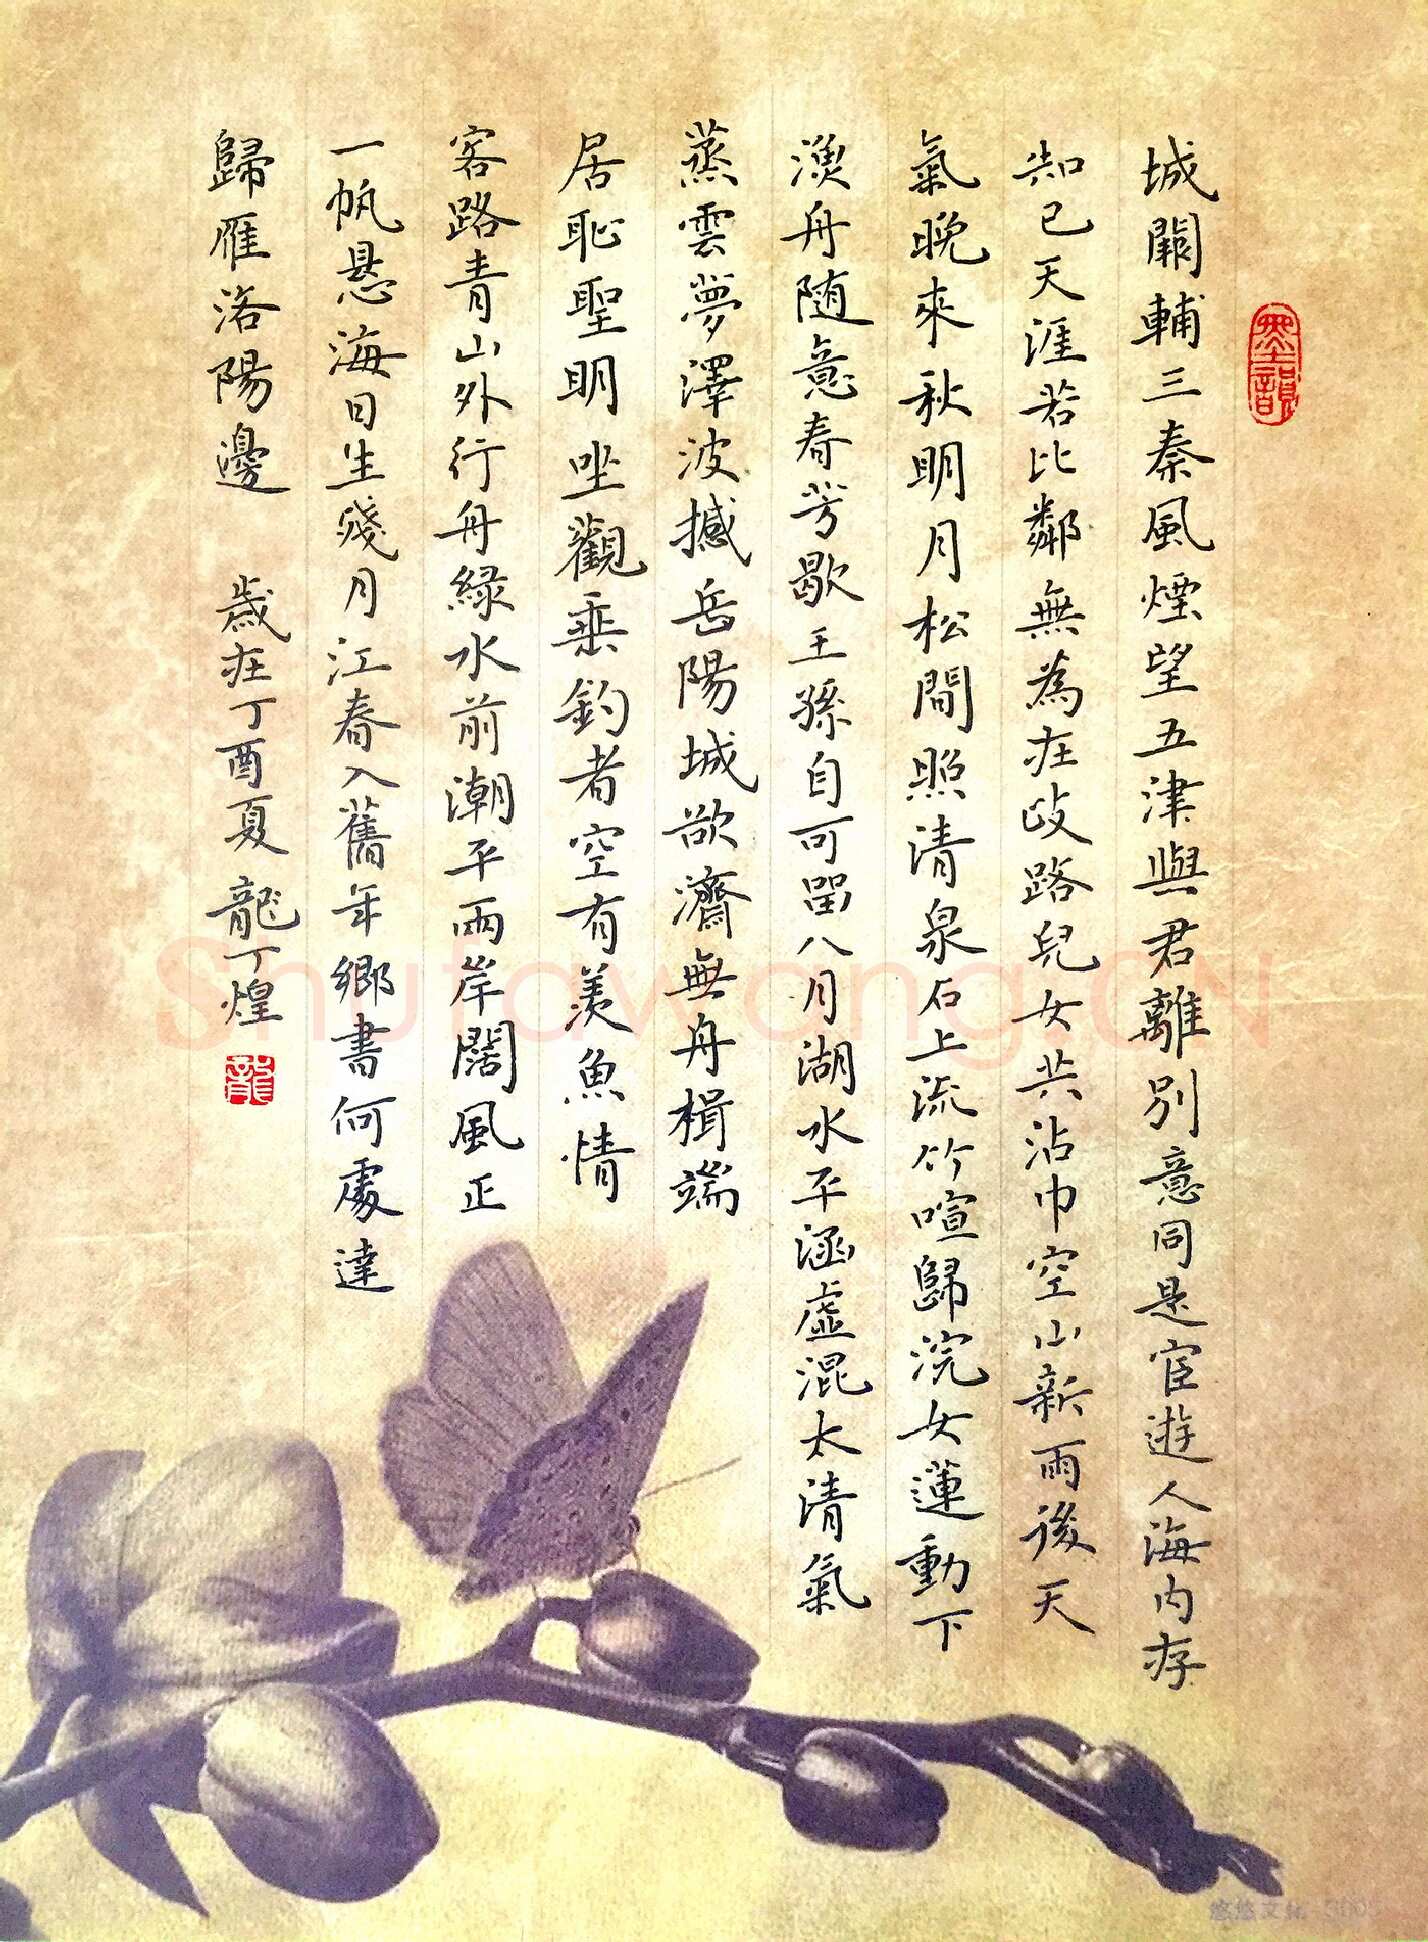 墨韻
城闕輔三秦風煙望五津與君離別意同是宦遊人海内存
知己天涯若比鄰無為在歧路兒女共沾巾空山新雨後天
氣晚來秋明月松間照清泉石上流竹喧歸浣女蓮動下
漁舟随意春芳歇王孫自可留八月湖水平涵虛混太清氣
蒸雲夢澤波撼岳陽城欲濟無舟楫端
居恥聖明坐觀垂釣者空有羨魚情
客路青山外行舟綠水前潮平兩岸闊風正
一帆悬海日生殘月江春入舊年鄉書何處達
歸雁洛陽邊 歲在丁酉夏龍丁煌
龍
Shufawang.CN